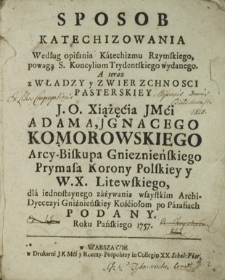 SPOSOB
KATECHIZOWANIA
Według opisania Katechizmu Rzymskiego,
powagą S. Koncylium Trydentskiego wydanego.
A teraz
z WŁADZY y ZWIERZCHNOSCI
PASTERSKIEY
J. O. Xiążęćia JMći
ADAMA, JGNACEGO
KOMOROWSKIEGO
Arcy-Biskupa Gnieznieńskiego
Prymasa Korony Polskiey y
W. X. Litewskiego,
dla iednostaynego zażywania wszystkim Archi-
Dyecezyi Gnieźnieńskiey Kośćiołom po Parafiach
PODANY.
Roku Pańskiego 1757.
w WARSZAWIE
w Drukarni J. K. Mći y Rzeczy-Pospolitey in Collegio XX. Schol: Piar: